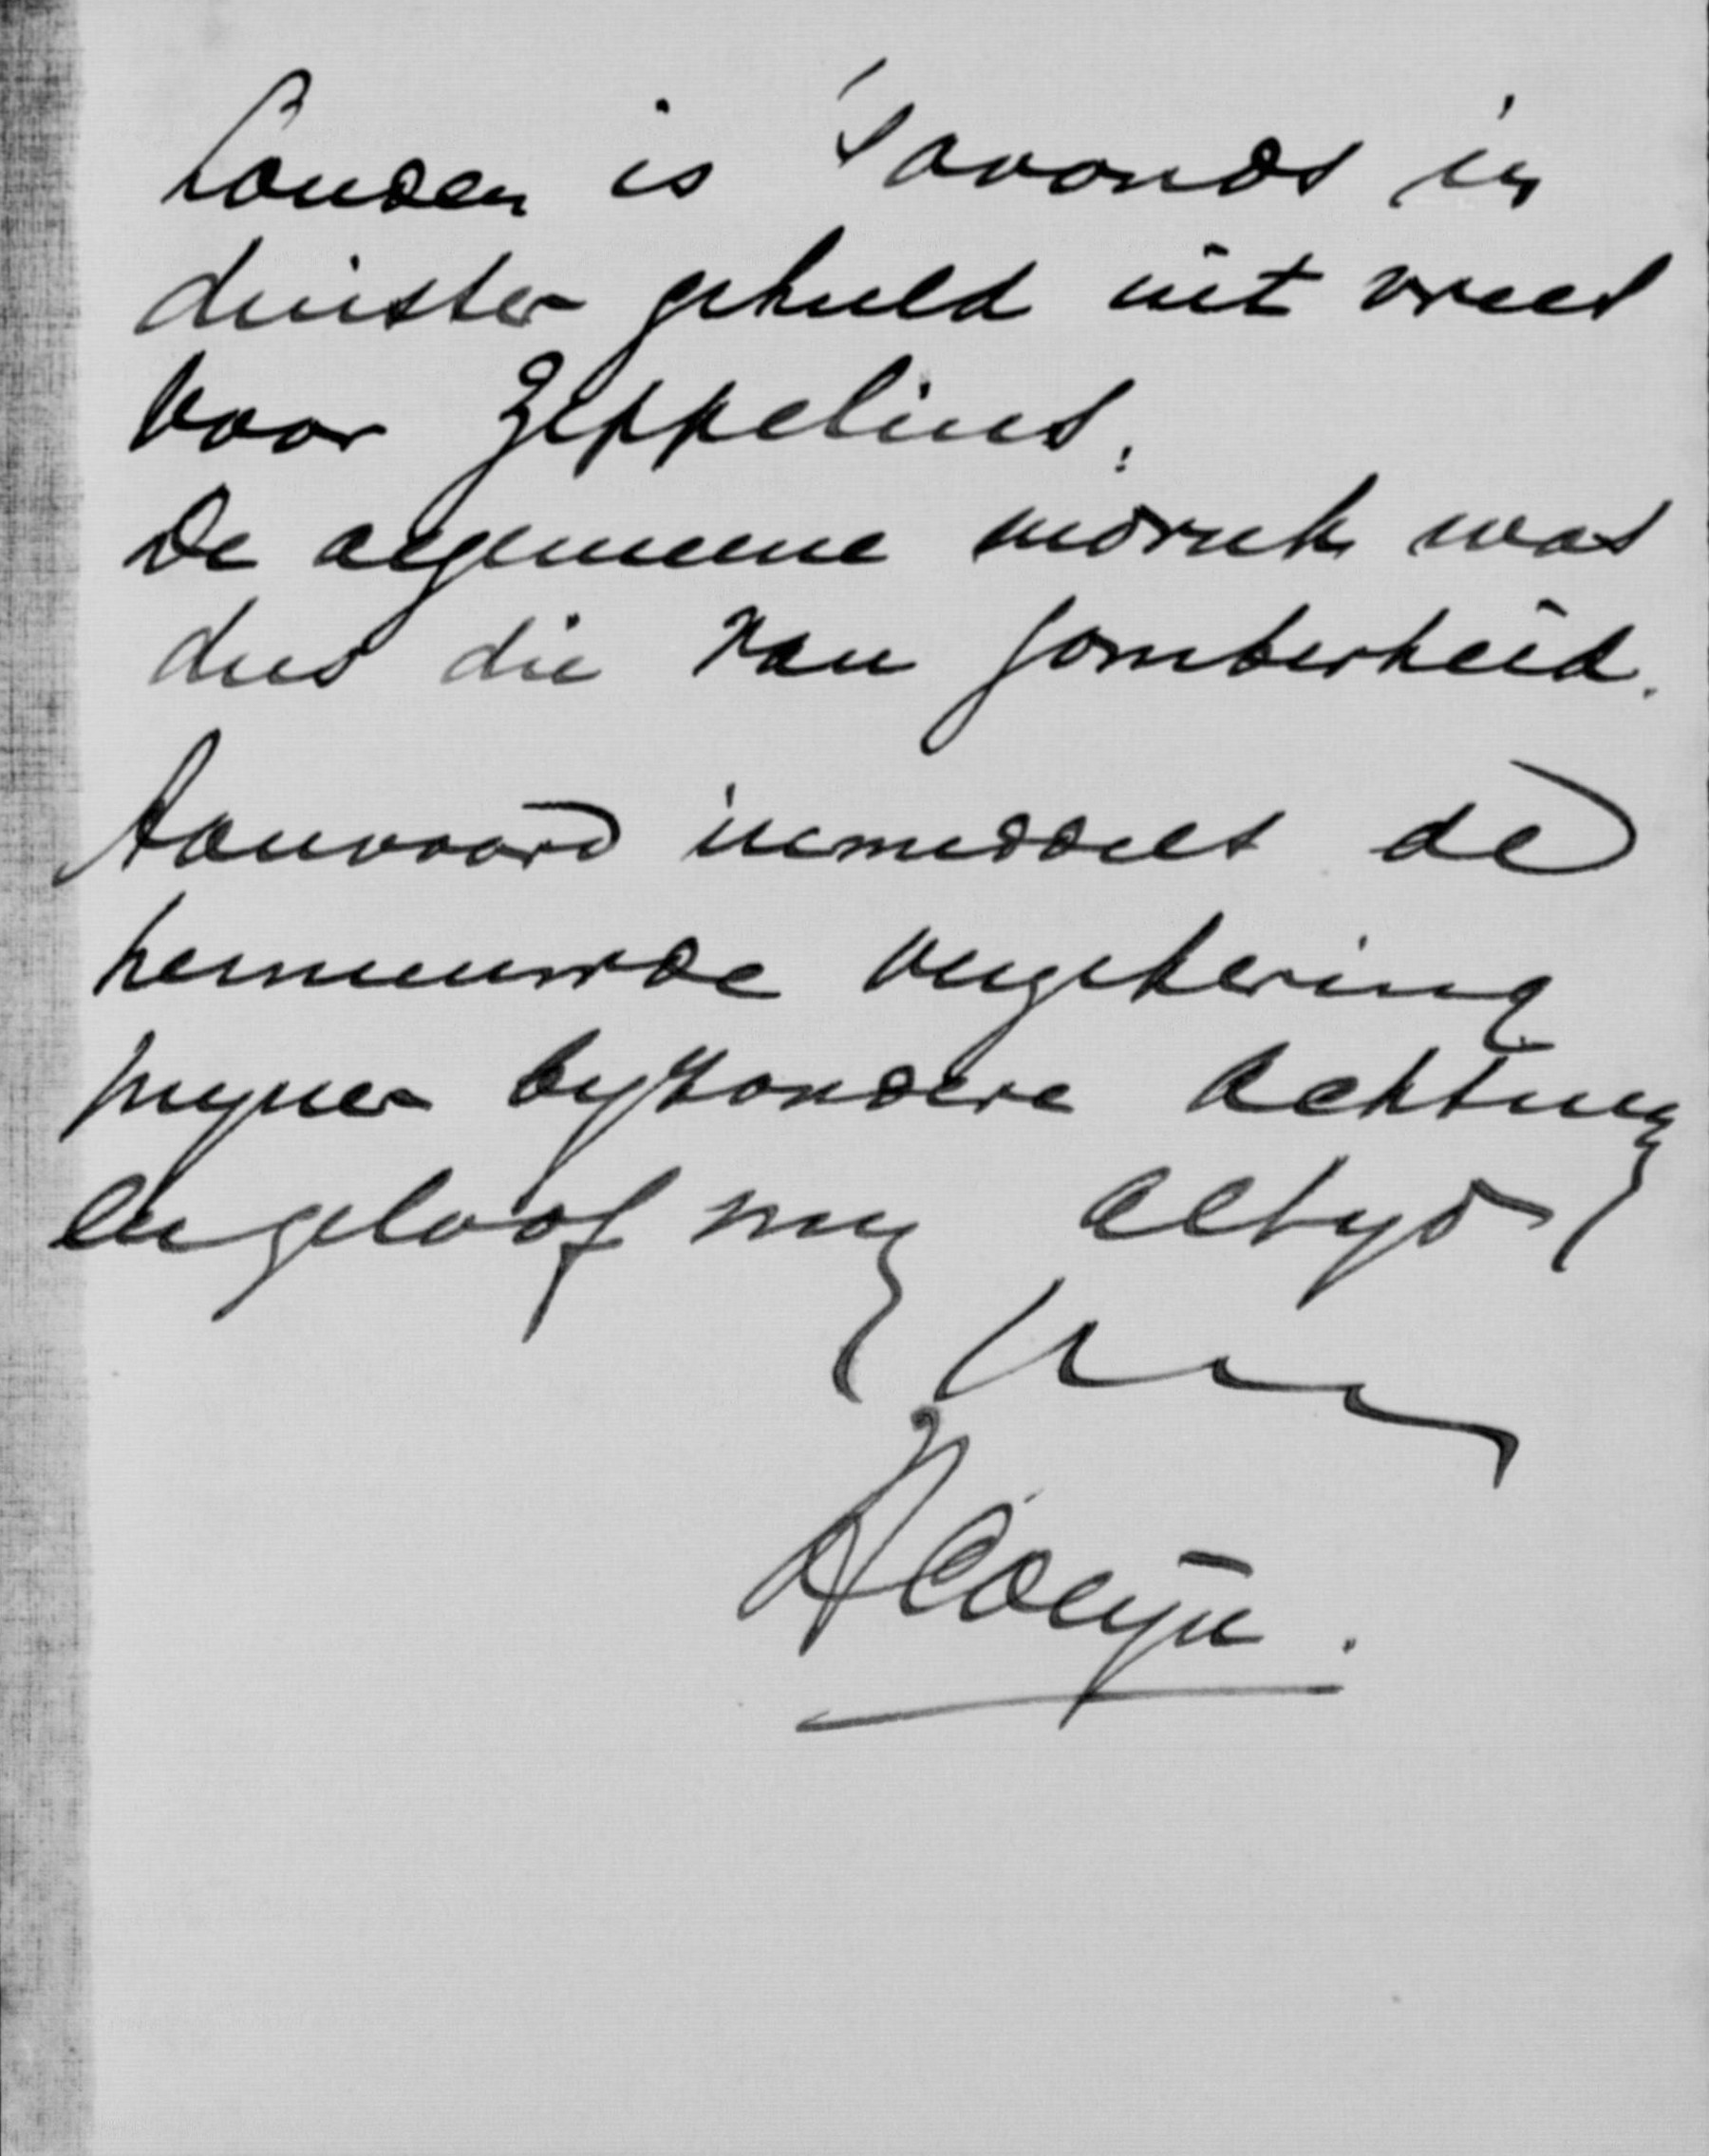 Londen is 's avonds in
duister gehuld uit vrees
voor Zeppelins.
De algemeene indruk was
dus die van somberheid.
Aanvaard inmiddels de
hernieuwde verzekering
mijner byzondere achting
en geloof my altyd
HColijn.